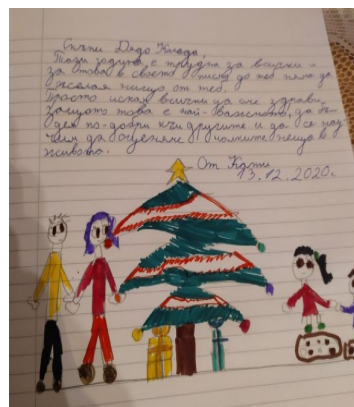 Скъпи Дядо Коледа,
Тази година е трудна за всички и
за това в своето писмо до теб няма да
желая нищо от теб.
Просто искам всички да сме здрави,
защото това е най-важното, да бъ-
дем по-добри към другите и да се нау-
чим да оценяме малките неща в
живота.
От Кати
13.12.2020г.